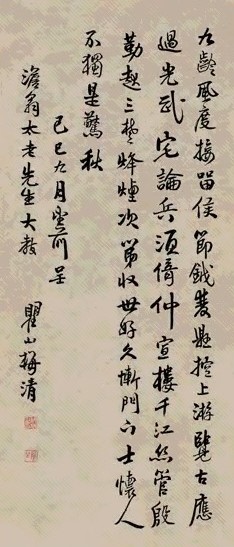 九齡風度接留侯節鉞裝懸控上游覽古應
過光武宅論兵須倚仲宣樓千江絲管殷
勤趣三楚烽煙次第收世好久慚門下士懷人
不獨是驚秋
己巳九月望前呈
澹翁太老先生大教
瞿山梅清